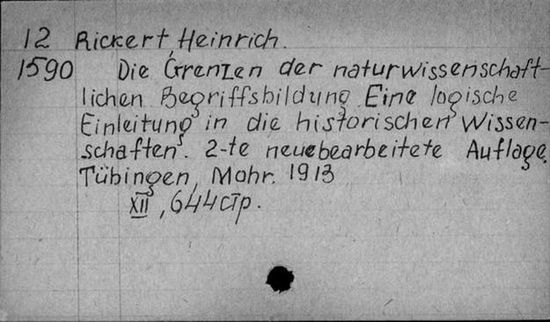 12 Rickert, Heinrich.
1590 Die Grenzen der naturwissenschaft-
lichen Begriffsbildung Eine logische
Einleitung in die historischen Wissen-
schaften. 2-te neuebearbeitete Auflage.
Tübingen, Mohr. 1913
XII, 644 стр.